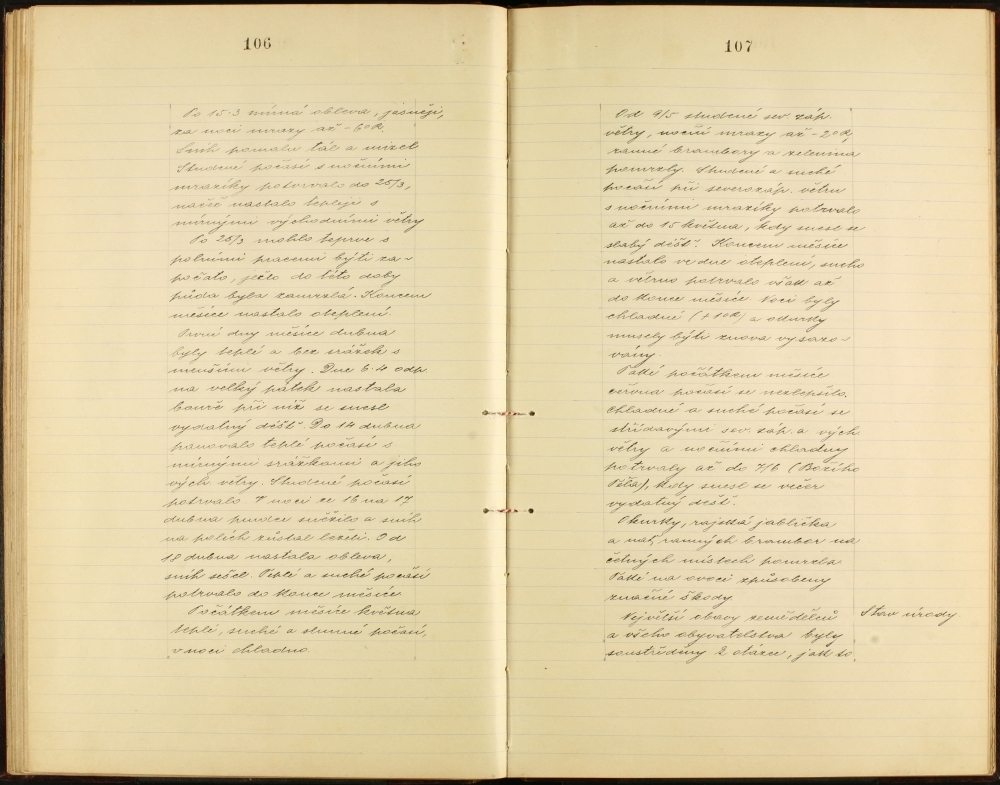 106
Po 15.3 mírná obleva, jasněji,
za noci mrazy až -6°R.
Sníh pomalu tál a mizel
Studené počasí s nočními
mrazíky potrvalo do 25/3,
načež nastalo tepleji s
mírnými východními větry
Po 25/3 mohlo teprve s
polními pracemi býti za-
počato, ježto do této doby
půda byla zamrzlá. Koncem
měsíce nastalo oteplení.
První dny měsíce dubna
byly teplé a bez srážek s
menšími větry. Dne 6.4 odp.
na velký pátek nastala
bouře při níž se snesl
vydatný déšť. Do 14 dubna
panovalo teplé počasí s
mírnými srážkami a jiho
vých. větry. Studené počasí
potrvalo. V noci ze 16 na 17
dubna prudce sněžilo a sníh
na polích zůstal ležeti. Od
18 dubna nastala obleva,
sníh sešel. Teplé a suché počasí
potrvalo do konce měsíce
Počátkem měsíce května
teplé, suché a slunné počasí,
v noci chladno.
107
Od 9/5 studené sev. záp.
větry, noční mrazy až -2°R,
ranné brambory a zelenina
pomrzly. Studené a suché
počasí při severozáp. větru
s nočními mrazíky potrvalo
až do 15 května, kdy snesl se
slabý déšť. Koncem měsíce
nastalo ve dne oteplení, sucho
a větrno potrvalo však až
do konce měsíce. Noci byly
chladné (+1°R) a okurky
musely býti znova vysazo-
vány.
Také počátkem měsíce
června počasí se nezlepšilo.
Chladné a suché počasí se
střídavými sev. záp. a vých.
větry a nočními chladny
potrvaly až do 7/6 (Božího
Těla), kdy snesl se večer
vydatný déšť.
Okurky, rajská jablíčka
a nať ranných brambor na
četných místech pomrzla
Také na ovoci způsobeny
značné škody.
Největší obavy zemědělců
a všeho obyvatelstva byly
soustředěny k otázce, jak to
Stav úrody